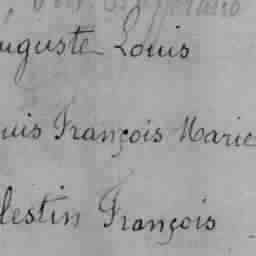 uguste Louis
uis François Marie
lestin François